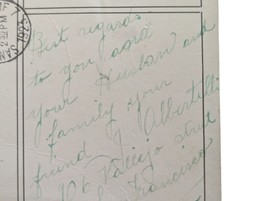 1923
Best regards
to you and
your Husban and
family your
friend J. Albertelli
Vallejo street
Francisco